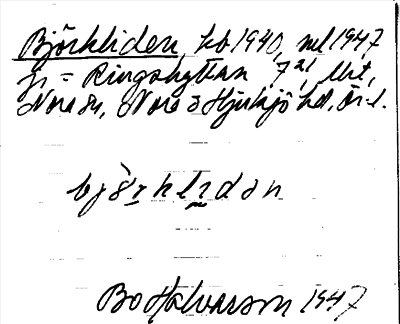 Björkliden, kb 1940, ml 1947
fr = Ringshyttan 7 21, lht,
Nora sn, Nora o Hjulsjö hd, Ör. l.
bjö̀rklıdən
Bo Halvarson 1947